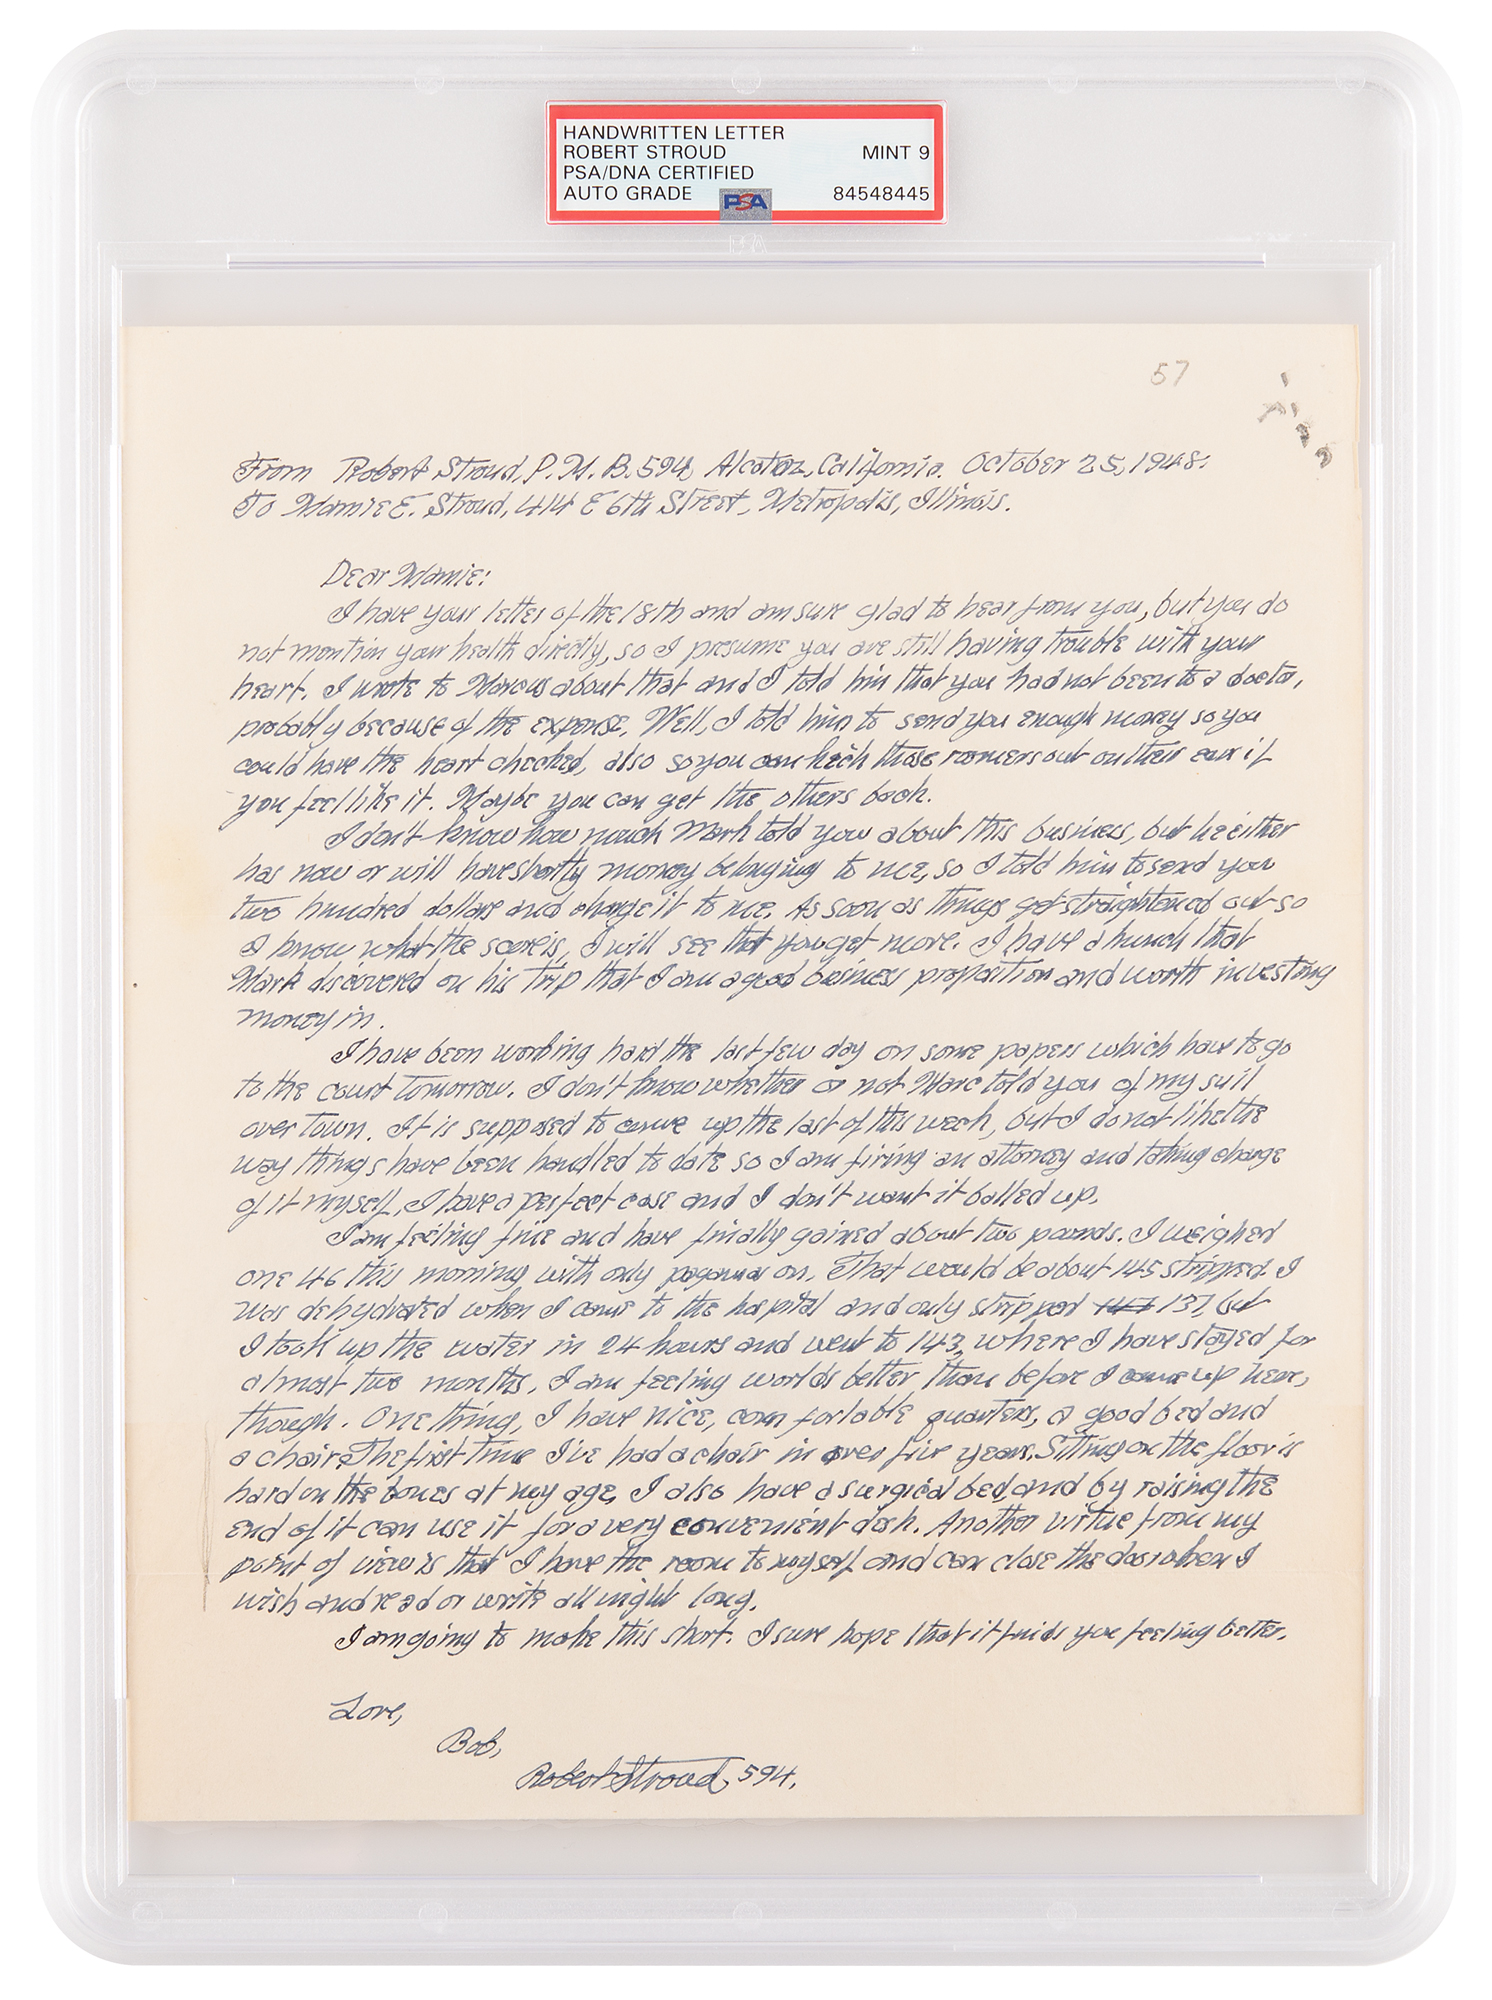 HANDWRITTEN LETTER
ROBERT STROUD MINT 9
PSA/DNA CERTIFIED
AUTO GRADE PSA 84548445
57
From Robert Stroud, P.M.B. 594, Alcatraz, California. October 25, 1948.
To Mamie E. Stroud, 414 E 6th Street, Metropolis, Illinois.
Dear Mamie:
I have your letter of the 18th and am sure glad to hear from you, but you do
not mention your health directly, so I presume you are still having trouble with your
heart. I wrote to Marcus about that and I told him that you had not been to a doctor,
probably because of the expense. Well, I told him to send you enough money so you
could have the heart checked, also so you can kick those roomers out on their ear if
you feel like it. Maybe you can get the others back.
I don't know how much Mark told you about this business, but he either
has now or will have shortly money belonging to me, so I told him to send you
two hundred dollars and charge it to me. As soon as things get straightened out so
I know what the score is, I will see that you get more. I have a hunch that
Mark discovered on his trip that I am a good business proposition and worth investing
money in.
I have been working hard the last few day on some papers which have to go
to the court tomorrow. I don't know whether or not Marc told you of my suit
over town. It is supposed to come up the last of this week, but I do not like the
way things have been handled to date so I am firing an attorney and taking charge
of it myself. I have a perfect case and I don't want it balled up.
I am feeling fine and have finally gained about two pounds. I weighed
one 46 this morning with only pajamas on. That would be about 145 stripped. I
was dehydrated when I came to the hospital and only stripped 137, but
I took up the water in 24 hours and went to 143, where I have stayed for
almost two months. I am feeling worlds better than before I came up here,
though. One thing, I have nice, comfortable quarters, a good bed and
a chair. The first time I've had a chair in over five years. Sitting on the floor is
hard on the bones at my age. I also have a surgical bed, and by raising the
end of it can use it for a very convenient desk. Another virtue from my
point of view is that I have the room to myself and can close the door when I
wish and read or write all night long.
I am going to make this short. I sure hope that it finds you feeling better.
Love,
Bob,
Robert Stroud, 594.